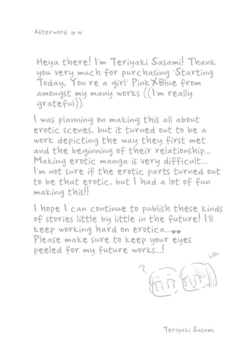 Afterword
Heya there! I'm Teriyaki Sasami! Thank
you very much for purchasing 'Starting
Today, You're a girl' PinkXBlue from
amongst my many works ((I'm really
grateful)).
I was planning on making this all about
erotic scenes, but it turned out to be a
work depicting the way they first met
and the beginning of their relationship...
Making erotic manga is very difficult...
I'm not sure if the erotic parts turned out
to be that erotic, but I had a lot of fun
making this!!
I hope I can continue to publish these kinds
of stories little by little in the future! I'll
keep working hard on erotica...♥♥
Please make sure to keep your eyes
peeled for my future works...!
?
LOL
Teriyaki Sasami